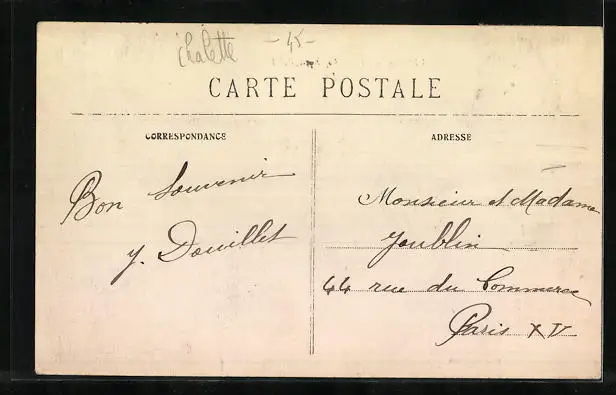 chalette - 45 -
CARTE POSTALE
CORRESPONDANCE
ADRESSE
Bon Souvenir
y. Douillet
Monsieur et Madame
Joublin
44 rue du Commerce
Paris XV